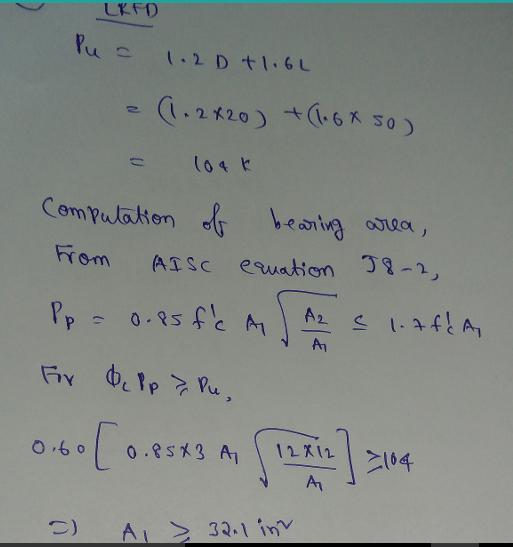 LRFD
Pu = 1.2 D + 1.6 L
= (1.2×20) + (1.6 × 50)
= 104 K
Computation of bearing area,
From AISC equation J8-2,
Pp = 0.85 f'c A1 √(A2/A1) ≤ 1.7 f'c A1
For Φc Pp ≥ Pu,
0.60 [0.85×3 A1 √(12×12/A1)] ≥ 104
=) A1 ≥ 32.1 in²